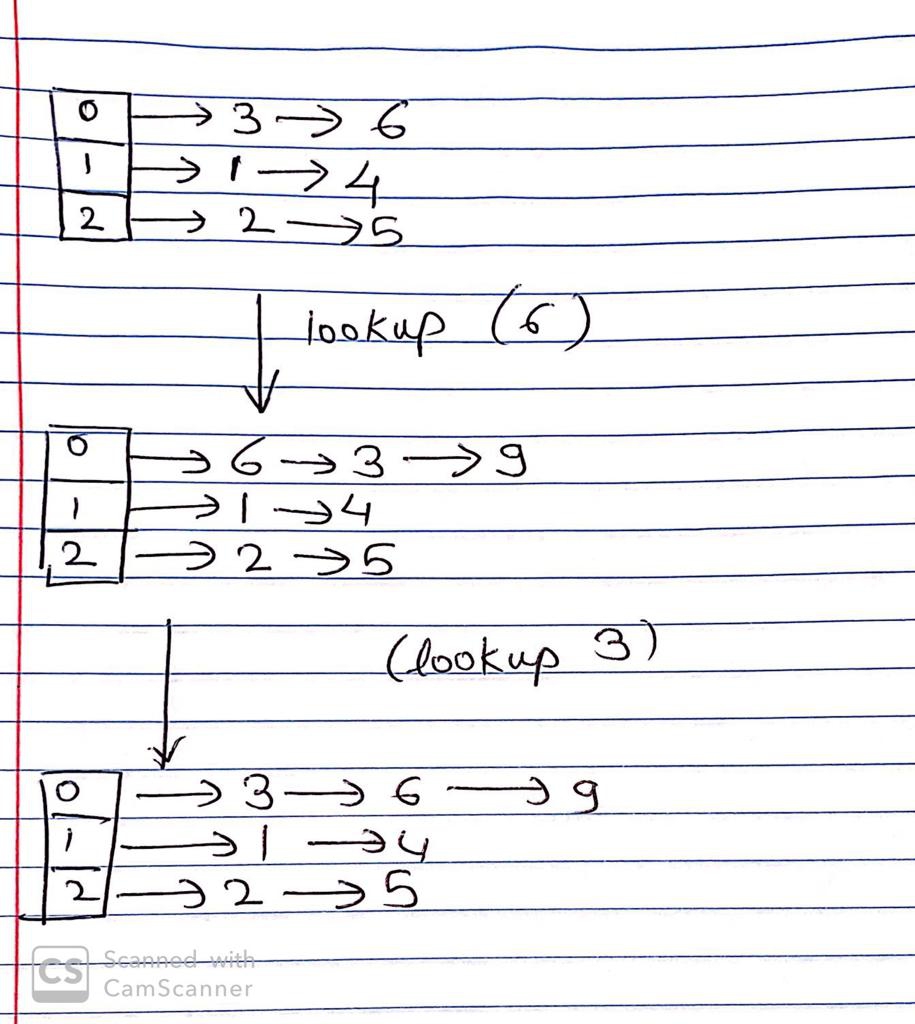 0 → 3 → 6
1 → 1 → 4
2 → 2 → 5
lookup (6)
0 → 6 → 3 → 9
1 → 1 → 4
2 → 2 → 5
(lookup 3)
0 → 3 → 6 → 9
1 → 1 → 4
2 → 2 → 5
CS Scanned with
CamScanner